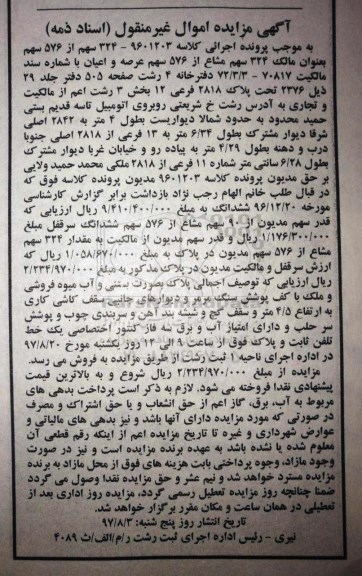 آگهی مزایده اموال غیرمنقول (اسناد ذمه)
به موجب پرونده اجرائی کلاسه ۹۶۰۱۲۰۳ - ۳۲۴ سهم از ۵۷۶ سهم
بعنوان مالک ۳۲۴ سهم مشاع از ۵۷۶ سهم عرصه و اعیان با شماره سند
مالکیت ۷۰۸۱۷ - ۷۲/۳/۳ دفترخانه ۴ رشت صفحه ۵۰۵ دفتر جلد ۲۹
ذیل ۲۳۷۶ تحت پلاک ۲۸۱۸ فرعی ۱۲ بخش ۳ رشت اعم از مالکیت
و تجاری به آدرس رشت خ شریعتی روبروی اتومبیل تاسه قدیم بستی
حمید محدود به حدود شمالا دیواریست بطول ۴ متر به ۲۸۴۲ اصلی
شرقا دیوار مشترک بطول ۶/۳۴ متر به ۱۳ فرعی از ۲۸۱۸ اصلی جنوبا
درب و دهنه بطول ۴/۲۹ متر به پیاده رو و خیابان غربا دیوار مشترک
بطول ۶/۲۸ سانتی متر شماره ۱۱ فرعی از ۲۸۱۸ ملکی محمد حمید ولایی
بر حق مدیون پرونده کلاسه ۹۶۰۱۲۰۳ مدیون پرونده کلاسه فوق که
در قبال طلب خانم الهام رجب نژاد بازداشت برابر گزارش کارشناسی
مورخه ۹۶/۱۲/۲۰ ششدانگ به مبلغ ۹/۴۱۰/۴۰۰/۰۰۰ ریال ارزیابی که
قدر سهم مدیون از سهم مشاع از ۵۷۶ سهم ششدانگ سرقفل مبلغ
۱/۱۷۶/۳۰۰/۰۰۰ ریال و قدر سهم مدیون از مالکیت به مقدار ۳۲۴ سهم
مشاع از ۵۷۶ سهم مدیون در پلاک به مبلغ ۱/۰۵۸/۶۷۰/۰۰۰ که با
ارزش سرقفل و مالکیت مدیون در پلاک مذکور به مبلغ ۲/۲۳۴/۹۷۰/۰۰۰
ریال ارزیابی که توصیف اجمالی پلاک بصورت بستنی و آب میوه فروشی
و ملک با کف پوش سنگ مرمر و دیوارهای جانبی سقف کاشی کاری
به ارتفاع ۴/۵ متر و سقف گچ و شیشه بند آهن و سربندی چوب و پوشش
سر حلب و دارای امتیاز آب و برق سه فاز کنتور اختصاصی یک خط
تلفن ثابت و پلاک فوق از ساعت ۹ الی ۱۲ روز یکشنبه مورخ ۹۷/۸/۲۰
در اداره اجرای ناحیه ۱ ثبت رشت از طریق مزایده به فروش می رسد.
مزایده از مبلغ ۲/۲۳۴/۹۷۰/۰۰۰ ریال شروع و به بالاترین قیمت
پیشنهادی نقدا فروخته می شود. لازم به ذکر است پرداخت بدهی های
مربوط به آب، برق، گاز اعم از حق انشعاب و یا حق اشتراک و مصرف
در صورتی که مورد مزایده دارای آنها باشد و نیز بدهی های مالیاتی و
عوارض شهرداری و غیره تا تاریخ مزایده اعم از اینکه رقم قطعی آن
معلوم شده یا نشده باشد به عهده برنده مزایده است و نیز در صورت
وجود مازاد، وجوه پرداختی بابت هزینه های فوق از محل مازاد به برنده
مزایده مسترد خواهد شد و نیم عشر و حق مزایده نقدا وصول می گردد
ضمنا چنانچه روز مزایده تعطیل رسمی گردد، مزایده روز اداری بعد از
تعطیلی در همان ساعت و مکان مقرر برگزار خواهد شد.
تاریخ انتشار روز پنج شنبه: ۹۷/۸/۳
نیری - رئیس اداره اجرای ثبت رشت ر/م/الف/ث ۴۰۸۹